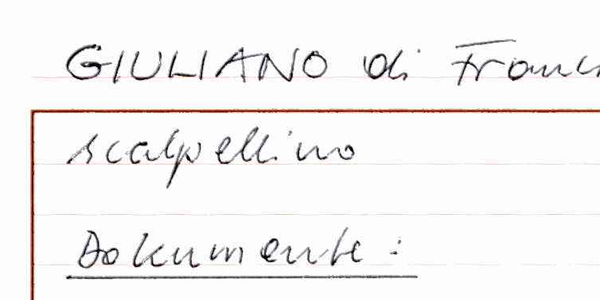 GIULIANO di Franc
scalpellino
Dokumente :